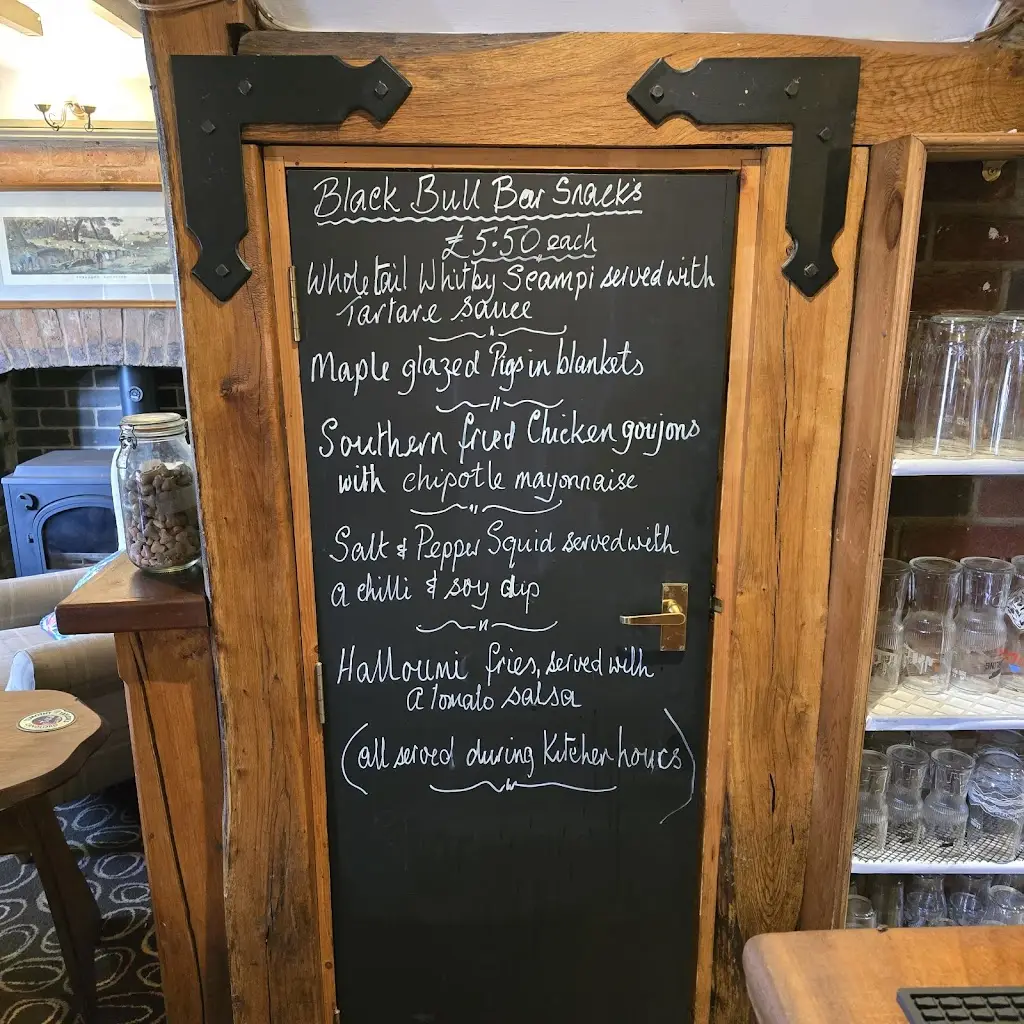 Black Bull Bar Snack's
£5.50 each
Wholetail Whitby Scampi served with
Tartare sauce
Maple glazed Pigs in blankets
Southern fried Chicken goujons
with chipotle mayonnaise
Salt & Pepper Squid served with
a chilli & soy dip
Halloumi fries, served with
a tomato salsa
(all served during Kitchen hours)